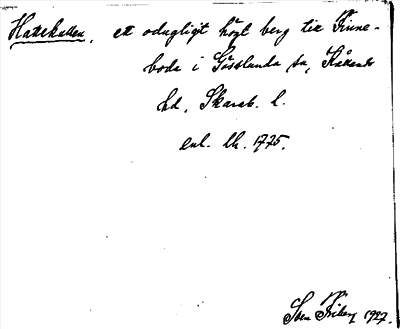 Hattekullen, ett odugligt högt berg till Finne-
boda i Gösslunda sn, Kållands
hd, Skarab. l.
enl. lk. 1775.
Sven Friberg 1927.